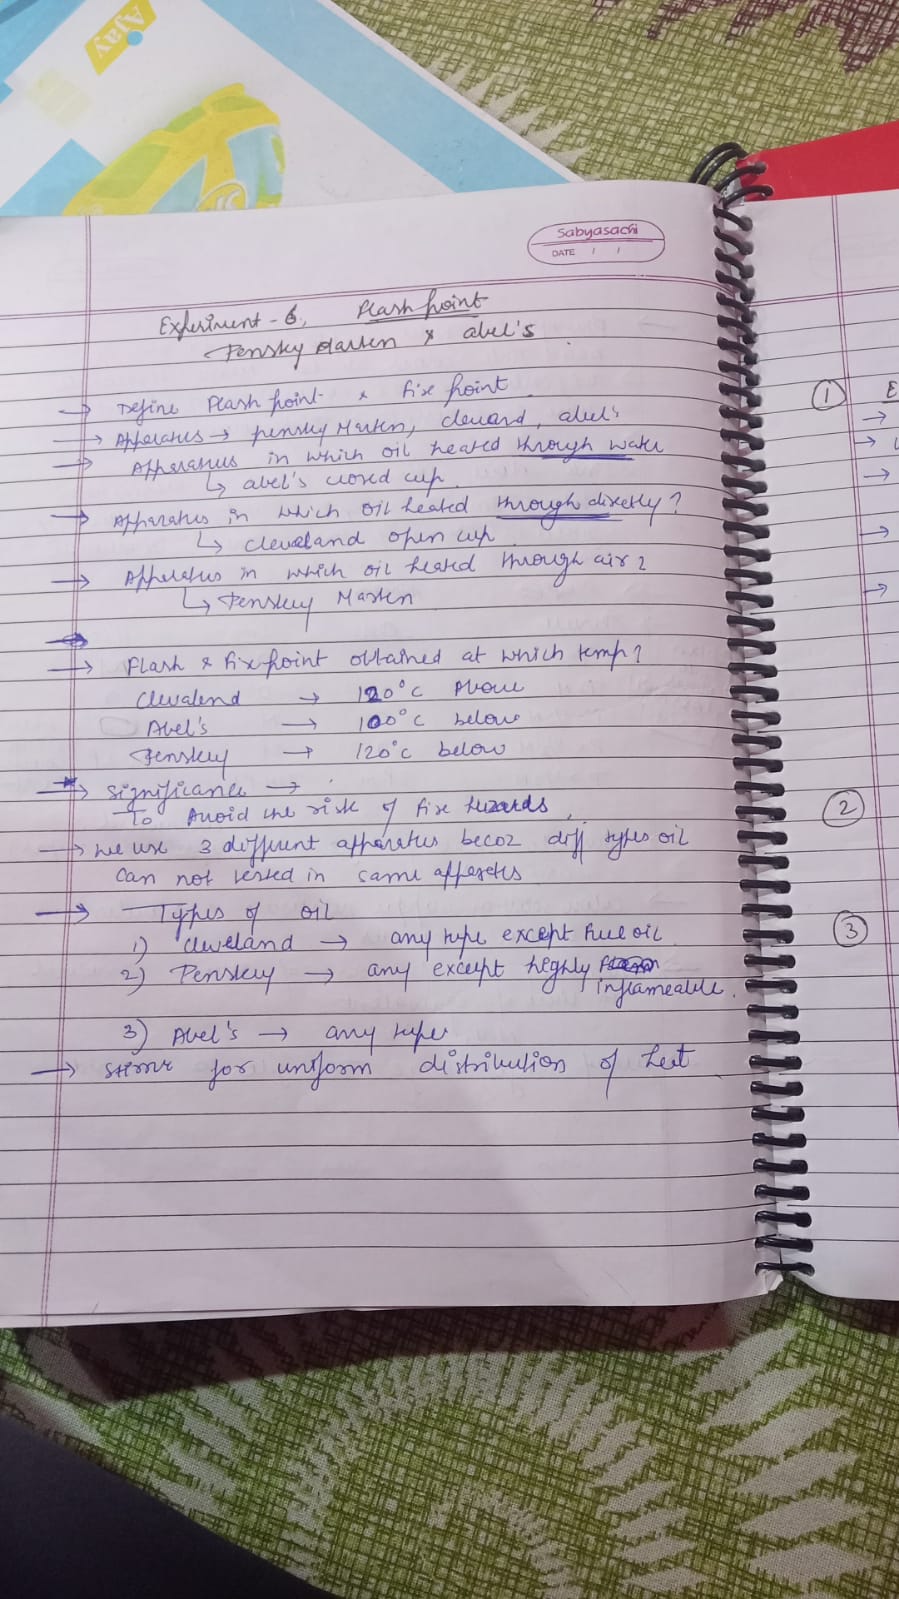 Ajay
Sabyasachi
DATE / /
Experiment - 6, Flash point
Pensky Marten & abel's
→ Define Flash point & fire point
→ Apparatus → pensky Marten, clevand, abel's
→ Apparatus in which oil heated through water
↳ abel's closed cup
→ Apparatus in which oil heated through directly?
↳ Cleveland open cup
→ Apparatus in which oil heated through air?
↳ Penskey Marten
→ Flash & fire point obtained at which temp?
Clevalend → 120°C Above
Abel's → 100°C below
Penskey → 120°C below
→ Significance →
To Avoid the risk of fire hazards
→ We use 3 different apparatus becoz diff types oil
can not tested in same apparatus
→ Types of oil
1) Cleveland → any type except fuel oil
2) Penskey → any except highly
inflameable.
3) Abel's → any type
→ for uniform distribution of heat
1 E
→
→
→
→
→
2
3